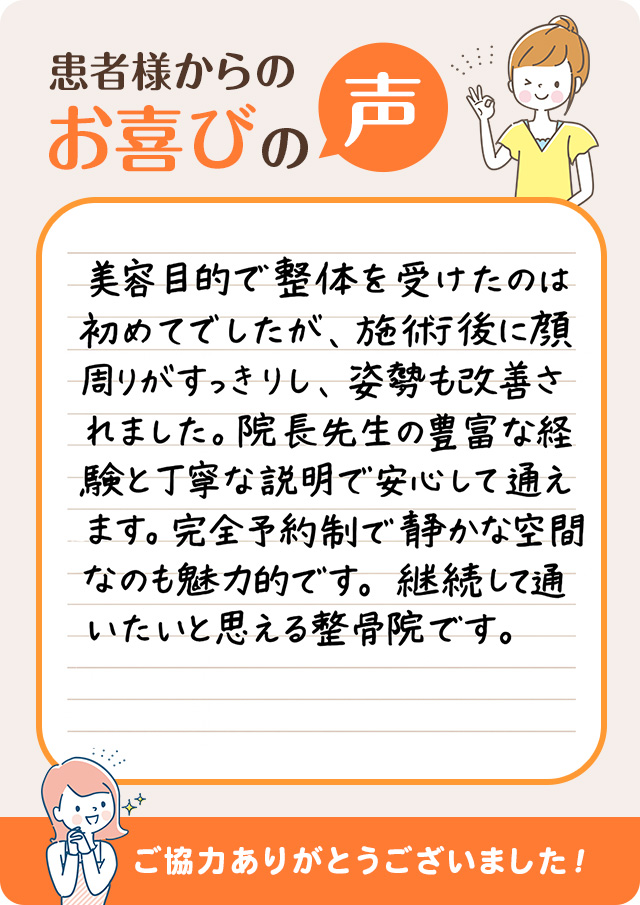 患者様からの
お喜びの声
美容目的で整体を受けたのは
初めてでしたが、施術後に顔
周りがすっきりし、姿勢も改善さ
れました。院長先生の豊富な経
験と丁寧な説明で安心して通え
ます。完全予約制で静かな空間
なのも魅力的です。継続して通
いたいと思える整骨院です。
ご協力ありがとうございました!